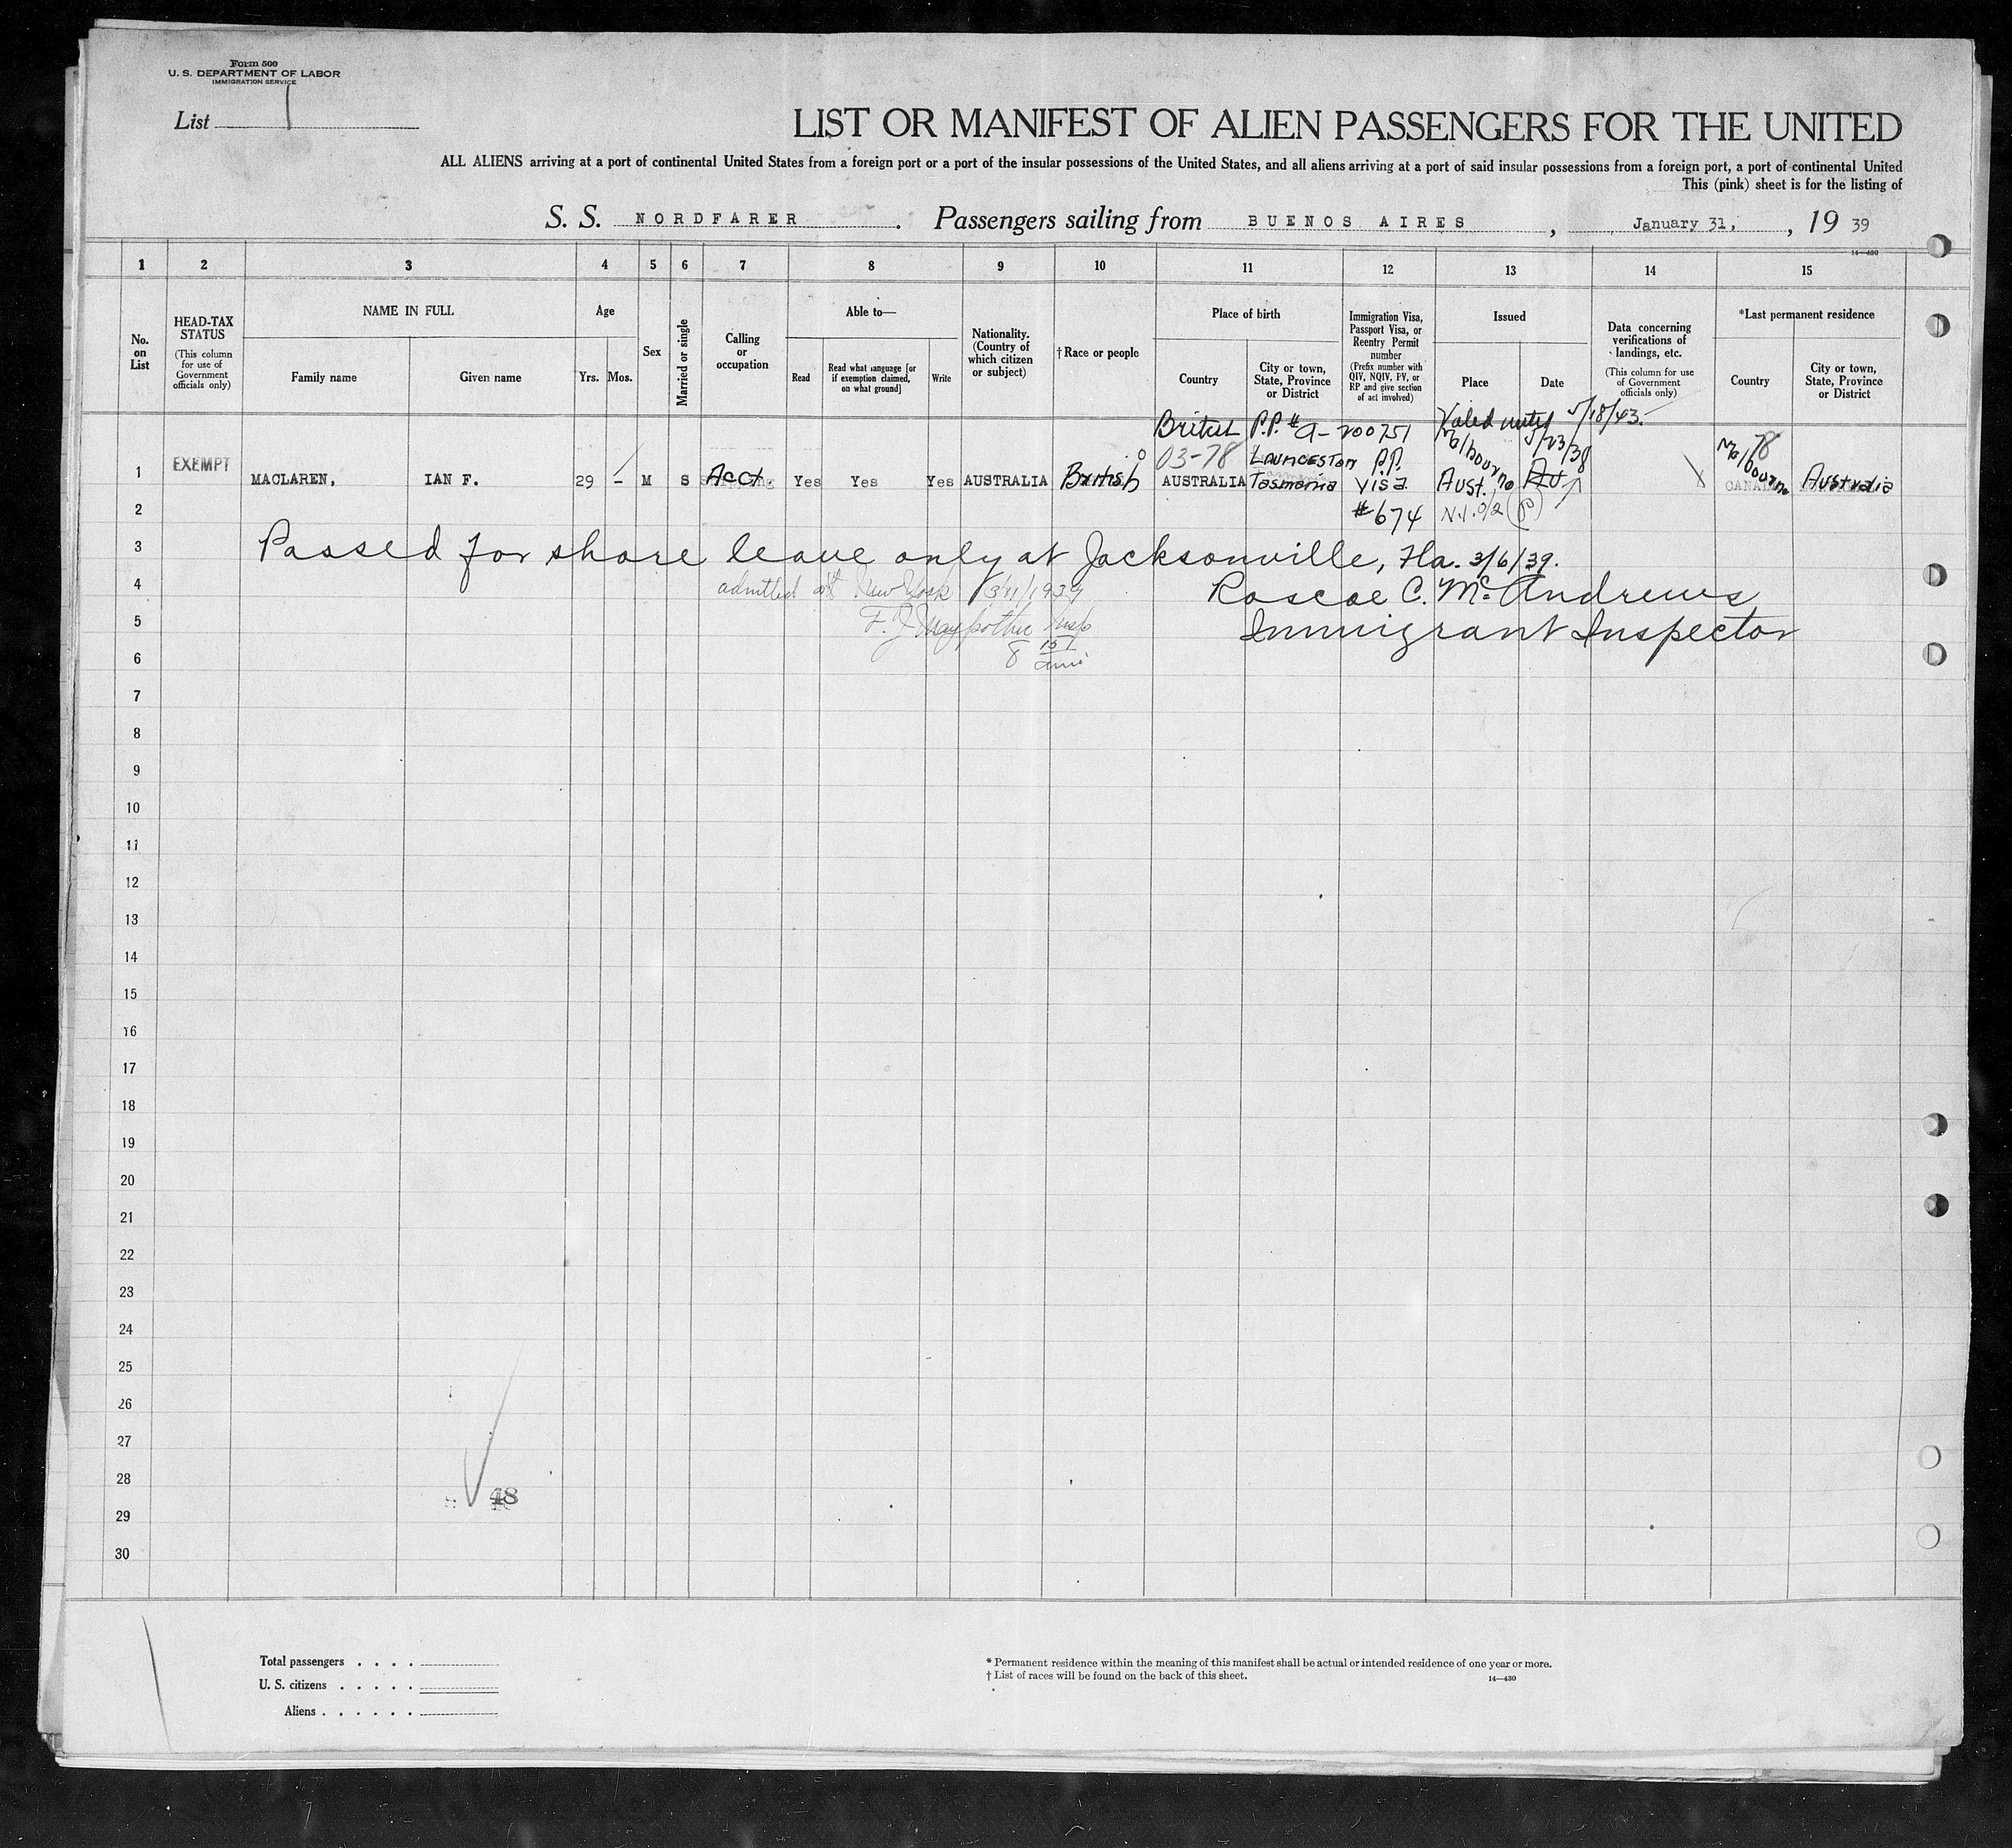 Form 500
U. S. DEPARTMENT OF LABOR
IMMIGRATION SERVICE
List 1
LIST OR MANIFEST OF ALIEN PASSENGERS FOR THE UNITED
ALL ALIENS arriving at a port of continental United States from a foreign port or a port of the insular possessions of the United States, and all aliens arriving at a port of said insular possessions from a foreign port, a port of continental United
This (pink) sheet is for the listing of
S. S. NORDFARER. Passengers sailing from BUENOS AIRES, January 31, , 19 39
14—430
1 2 3 4 5 6 7 8 9 10 11 12 13 14 15
No. on List
HEAD-TAX STATUS
(This column for use of Government officials only)
NAME IN FULL
Family name
Given name
Age
Yrs. Mos.
Sex
Married or single
Calling or occupation
Able to—
Read
Read what language [or if exemption claimed, on what ground]
Write
Nationality. (Country of which citizen or subject)
†Race or people
Place of birth
Country
City or town, State, Province or District
Immigration Visa, Passport Visa, or Reentry Permit number
(Prefix number with QIV, NQIV, PV, or RP and give section of act involved)
Issued
Place
Date
Data concerning verifications of landings, etc.
(This column for use of Government officials only)
*Last permanent residence
Country
City or town, State, Province or District
British P.P. # A-200751 Valid until 5/18/43.
03-78 Launceston P.P. Melbourne 5/23/38 78
1 EXEMPT MACLAREN, IAN F. 29 - M S Acct. Yes Yes Yes AUSTRALIA British AUSTRALIA Tasmania Visa Aust. Melbourne Australia
2 #674
3 Passed for shore leave only at Jacksonville, Fla. 3/6/39.
4 admitted at New York 3/11/1939 Roscoe C. McAndrews
5 F. J. Insp Immigrant Inspector
6 8
7
8
9
10
11
12
13
14
15
16
17
18
19
20
21
22
23
24
25
26
27
28
48
29
30
Total passengers . . . .
U. S. citizens . . . . .
Aliens . . . . . .
* Permanent residence within the meaning of this manifest shall be actual or intended residence of one year or more.
† List of races will be found on the back of this sheet.
14—430